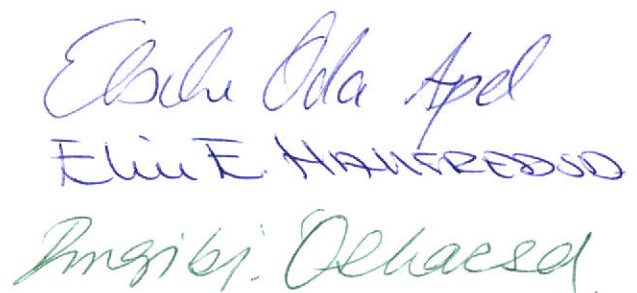 Elsche Oda Apel
Elin E. MANFREDSD
Ingibj. Ólhaesd.